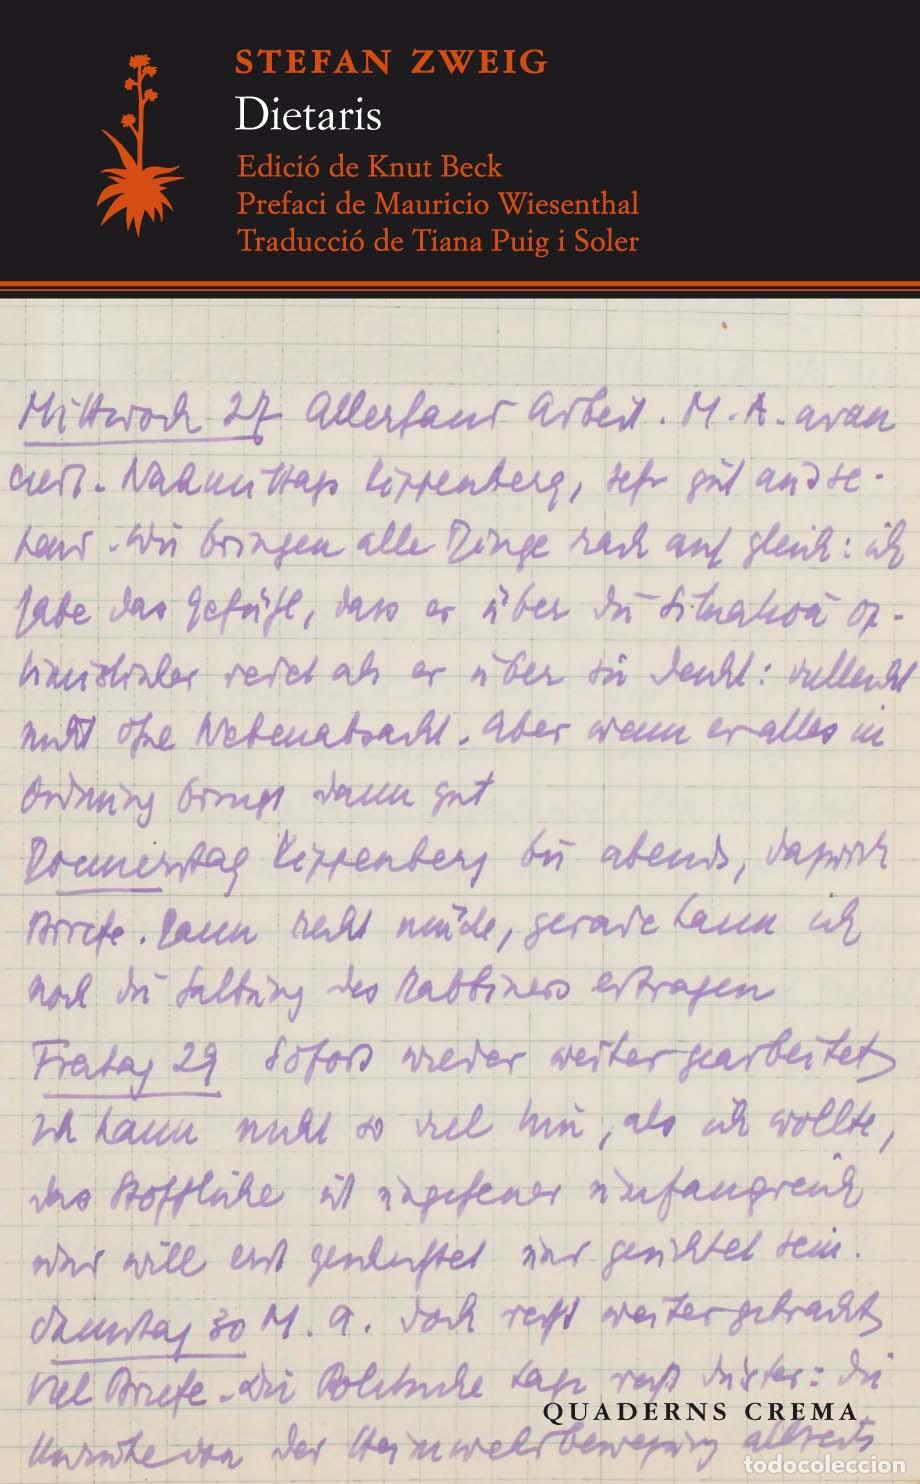 STEFAN ZWEIG
Dietaris
Edició de Knut Beck
Prefaci de Mauricio Wiesenthal
Traducció de Tiana Puig i Soler
Mittwoch 27 Allerhand Arbeit. M. A. avan
ciert. Nachmittags Kippenberg, sehr gut
Wir bringen alle Dinge rasch auf gleich: ich
habe das Gefühl, dass er über die Situation op-
timistischer redet als er über sie denkt: vielleicht
nicht ohne Nebenabsicht. Aber wenn er alles in
Ordnung bringt dann gut
Donnerstag Kippenberg bis abends,
Briefe. Dann recht müde, gerade kann ich
noch die Salbung des Rabbiners ertragen
Freitag 29 Sofort wieder weiter gearbeitet
Ich kann nicht so viel tun, als ich wollte,
das Stoffliche ist ungeheuer umfangreich
und will erst und gesichtet sein.
Samstag 30 M. A. doch recht weiter gebracht
Viel Briefe. Die Politische Lage recht düster: die
der Heimwehrbewegung allseits
QUADERNS CREMA
todocoleccion